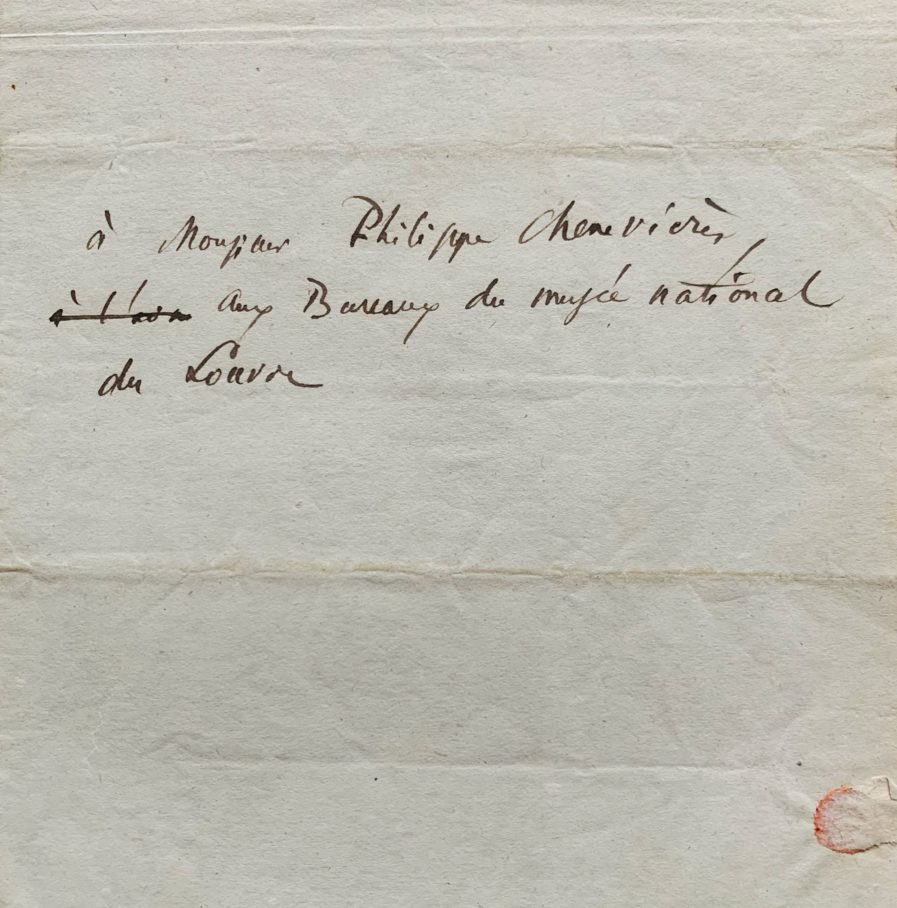 à Monsieur Philippe Chenevières
aux Bureaux du musée national
du Louvre